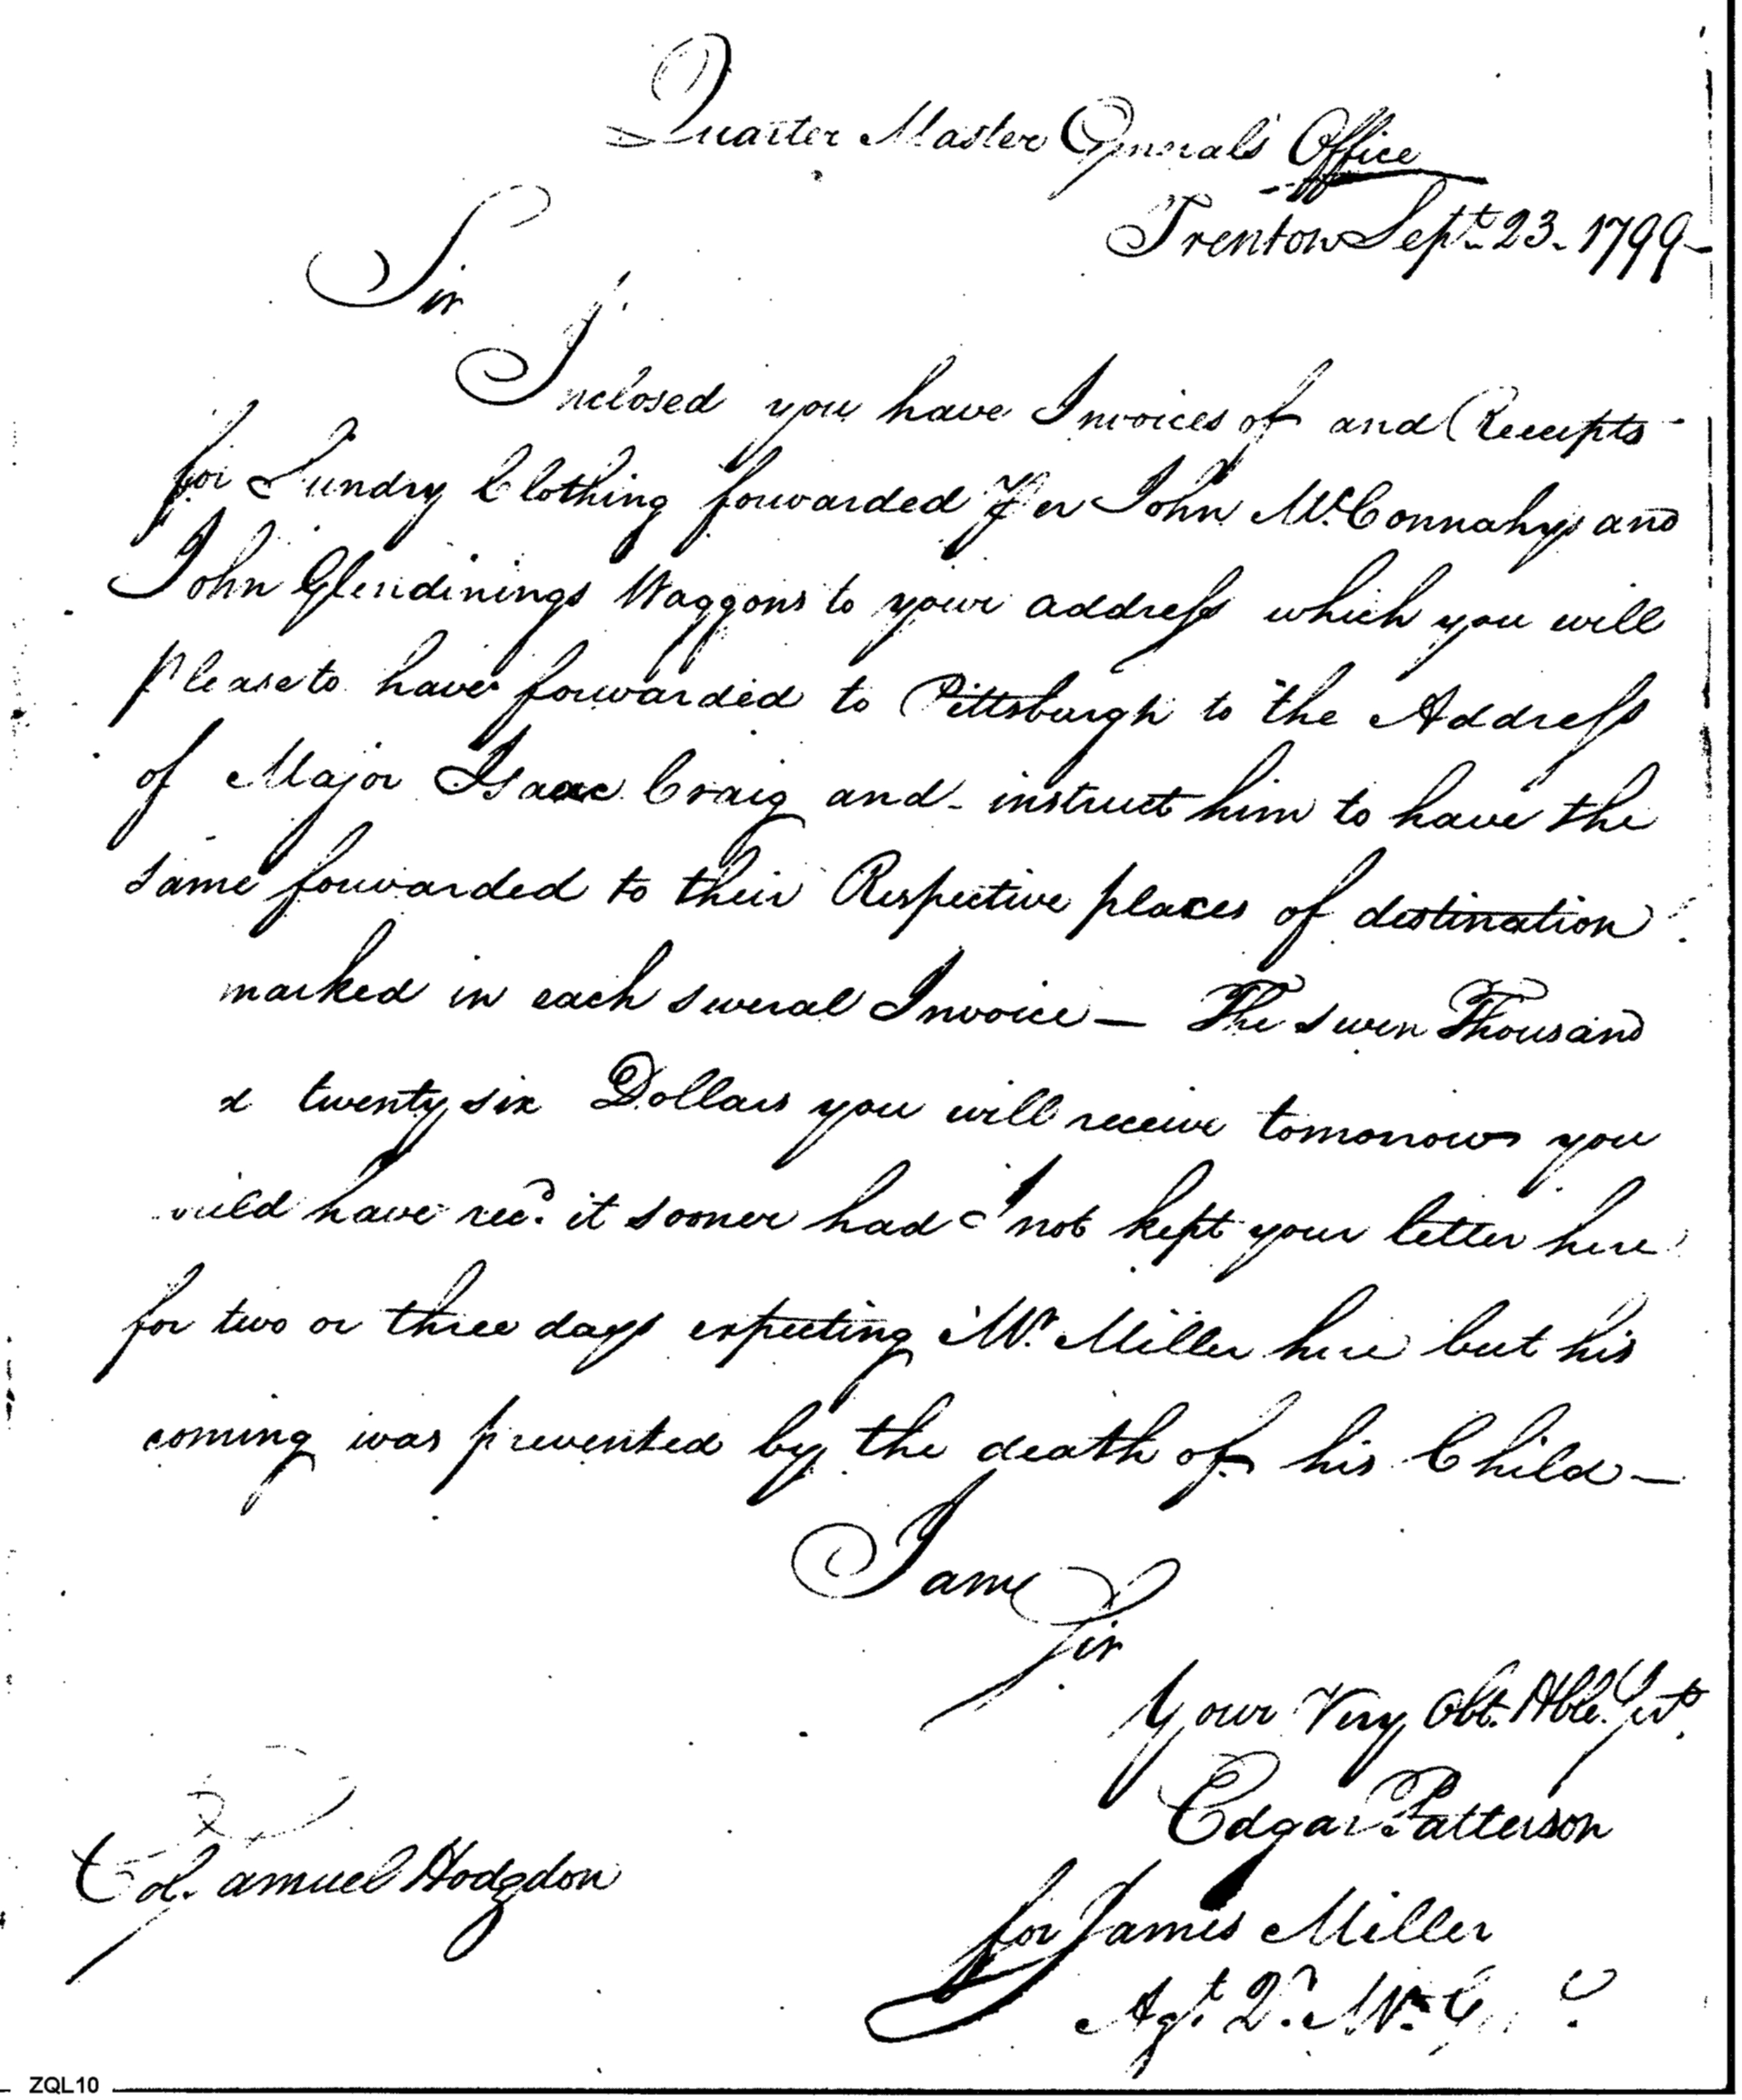 Quarter Master General's Office
Trenton Sept. 23. 1799
Sir
Inclosed you have Invoices of and Receipts
for Sundry Clothing forwarded Per John McConnahys and
John Glendinings Waggons to your address which you will
please to have forwarded to Pittsburgh to the Address
of Major Isaac Craig and instruct him to have the
same forwarded to their Respective places of destination
marked in each several Invoice — The seven Thousand
& twenty six Dollars you will receive tomorrow you
have recd. it sooner had I not kept your letter here
for two or three days expecting Mr. Miller here but his
coming was prevented by the death of his Child —
I am
Sir
Your Very Obt. Hble. Svt.
Edgar Patterson
for James Miller
Agt. Qr. Mr.
Col. Samuel Hodgdon
ZQL10